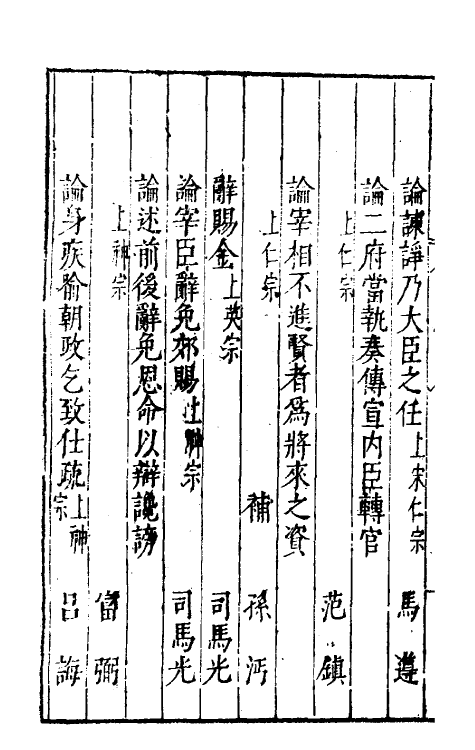 論諫諍乃大臣之任上宋仁宗 馬遵
論二府當執奏傳宣内臣轉官
上仁宗 范鎮
論宰相不進賢者爲將來之資
上仁宗 補 孫沔
辭賜金上英宗 司馬光
論宰臣辭免郊賜上神宗 司馬光
論述前後辭免恩命以辯讒謗
上神宗 富弼
論身疾喻朝政乞致仕疏上神宗 呂誨